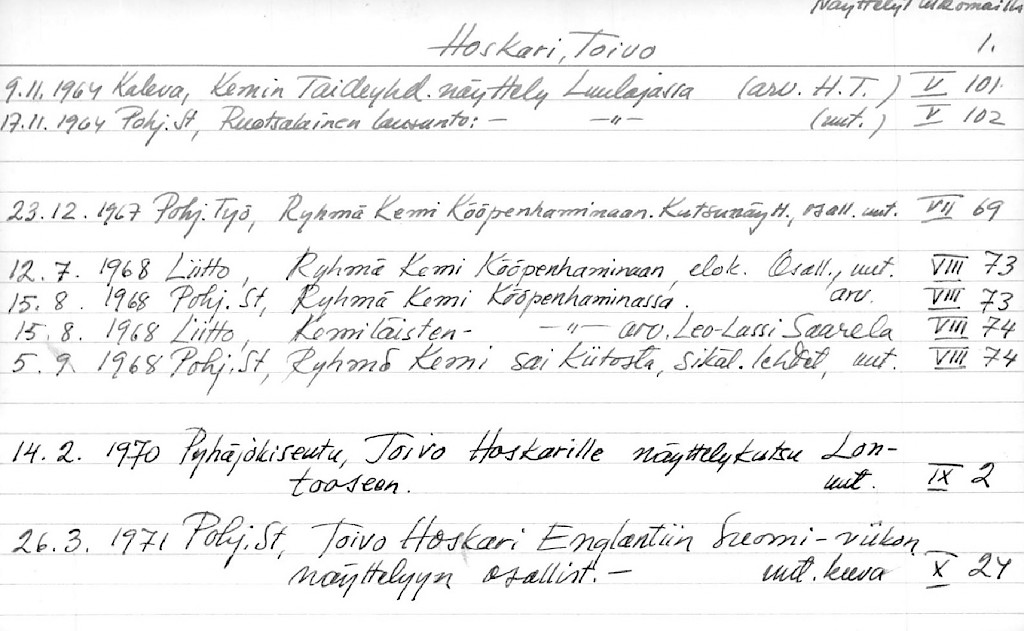 Näyttelyt ulkomailla
Hoskari, Toivo 1.
9.11.1964 Kaleva, Kemin Taideyhd. näyttely Luulajassa (arv. H.T.) V 101
17.11.1964 Pohj. St, Ruotsalainen lausunto: - -"- (uut.) V 102
23.12.1967 Pohj. Työ, Ryhmä Kemi Kööpenhaminaan. Kutsunäytt., osall. uut. VII 69
12.7. 1968 Liitto, Ryhmä Kemi Kööpenhaminaan, elok. Osall., uut. VIII 73
15.8. 1968 Pohj. St, Ryhmä Kemi Kööpenhaminassa. arv. VIII 73
15.8. 1968 Liitto, Kemiläisten- -"- arv. Leo-Lassi Saarela VIII 74
5.9 1968 Pohj. St, Ryhmä Kemi sai kiitosta, sikäl. lehdet, uut. VIII 74
14.2. 1970 Pyhäjokiseutu, Toivo Hoskarille näyttelykutsu Lon-
tooseen. uut. IX 2
26.3. 1971 Pohj. St, Toivo Hoskari Englantiin Suomi-viikon
näyttelyyn osallist. - uut. kuva X 24